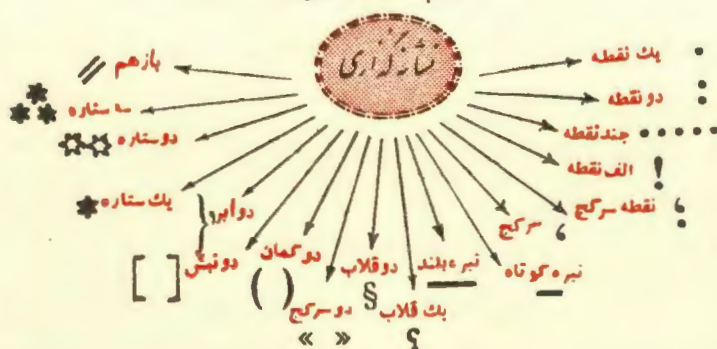 نشانه‌گذاری
یك نقطه .
دو نقطه :
چند نقطه .....
الف نقطه !
نقطه سرکج ؛
سرکج ،
تیره کوتاه —
تیره بلند —
یك قلاب ؟
دو قلاب §
دو سرکج « »
دو کمان ( )
دو نبش [ ]
دو ابر }
یك ستاره *
دو ستاره ☆-☆
سه ستاره ***
بازهم //